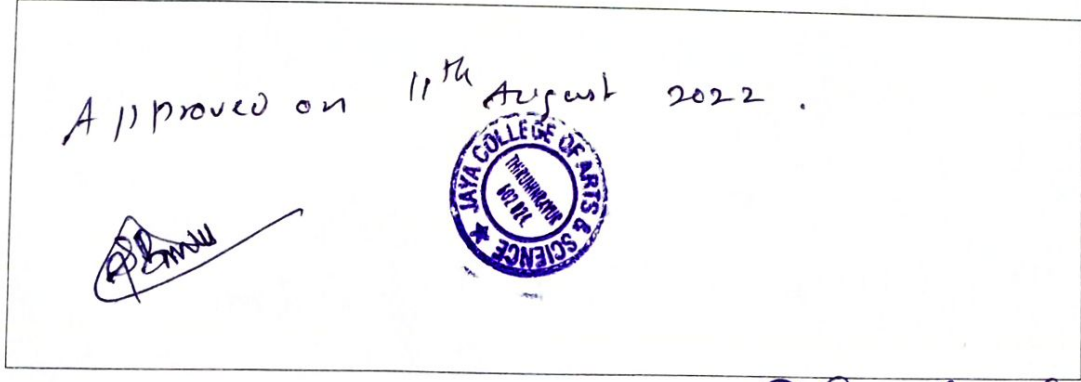 Approved on 11th August 2022.
JAYA COLLEGE OF ARTS & SCIENCE
THIRUNINRAVUR
602 024